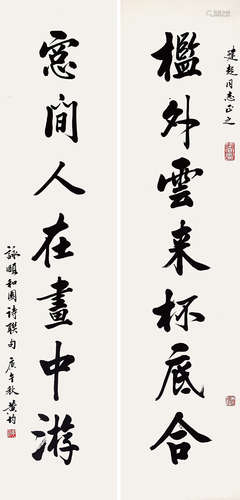 建超同志正之
檻外雲来杯底合
窓間人在畫中游
詠頤和園诗聯句 庚午秋 黄均